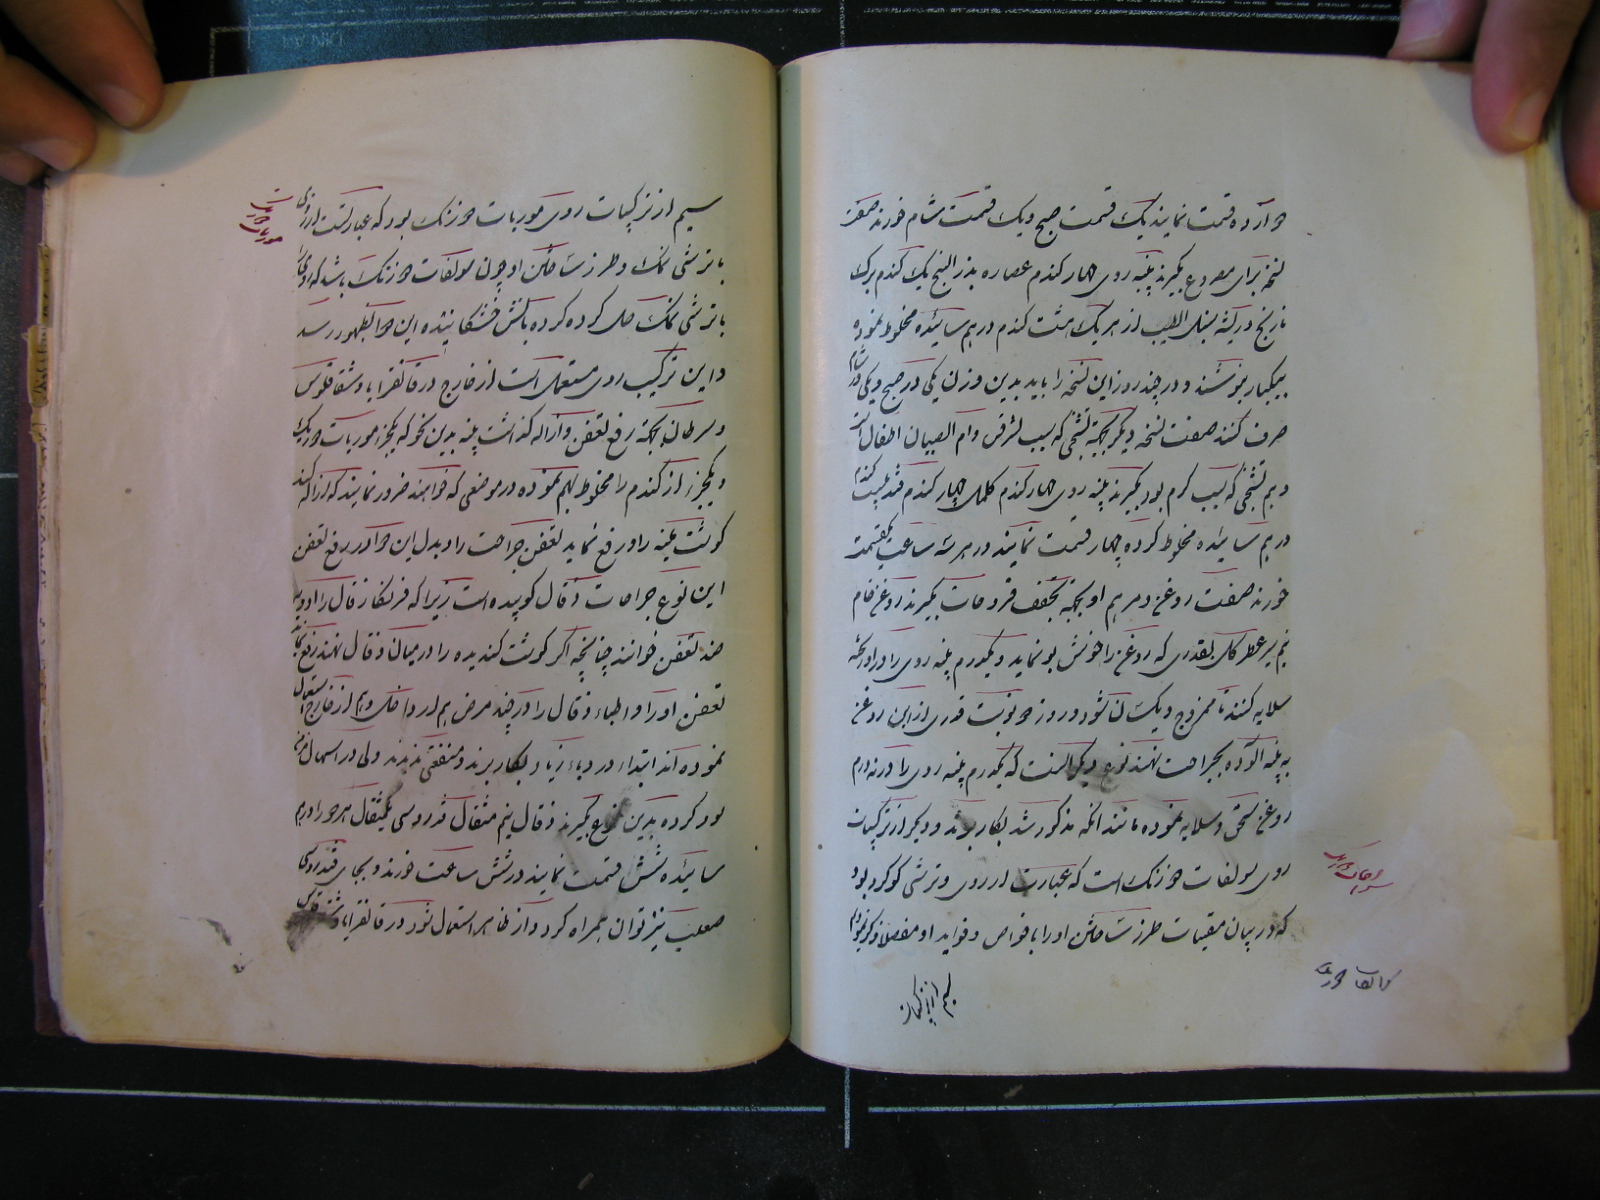 دو آرده قسمت نمایند یک قسمت صبح و یک قسمت شام خورند صفت
نسخه برای مصروع بگیرند پنبه روی چهار کندم عصاره بذر البنج یک کندم برک
نارنج در کوفته سنبل الطیب از هر یک هشت کندم درهم سائیده مخلوط نموده
بیکبار بنوشند و در چند روز این نسخه را باید بدین وزن یکی در صبح و یکی در شام
صرف کنند صفت نسخه دیگر بجهة تشنجی که بسبب نقرس و ام الصبیان اطفال
و هم تشنجی که بسبب کرم بود بگیرند پنبه روی چهار کندم کلملک چهار کندم قند بیست کندم
درهم سائیده مخلوط کرده چهار قسمت نمایند در هر سه ساعت یکقسمت
خورند صفت روغن و مرهم او بجهة تجفیف قروحات بگیرند روغن خام
نیم سیر عطر کل بقدری که روغن را خوش بو نماید و یکدرم پنبه روی را در او ریخته
سلایه کنند تا ممزوج و یکسان شود و روز دو نوبت قدری از این روغن
به پنبه آلوده بجراحت نهند نوع دیگر آنست که یکدرم پنبه روی را در نه درم
روغن سلایه نموده مانند آنکه مذکور شد بکار برند و دیگر از ترکیبات
روی سولفات دوزنک است که عبارت از روی و ترشی کوکرد بود
که در بیان مقیات طرز ساختن او را با خواص و فواید او مفصلا ذکر نمودم
سولفات دوزنک
سیم از ترکیبات
سیم از ترکیبات روی موریات دوزنک بود که عبارتست از روی
با ترشی نمک و طرز ساختن او چون سولفات دوزنک باشد که روی را
با ترشی نمک حل کرده کرده بآتش خشکانیده این دوا بظهور رسد
و این ترکیب روی مستعمل است از خارج در قانقرایا و شقاقلوس
و سرطان بجهة رفع تعفن و ازاله کذاشت پنبه بدین نحو که یکجزء موریات دوزنک
و یکجزء آرد کندم را مخلوط بهم نموده در موضعی که خواهند ضرور نمایند که ازاله کند
کوشت پنبه را و رفع نماید تعفن جراحت را و بدل این دوا در رفع تعفن
این نوع جراحات ذقال کوبیده است زیرا که فرنکان ذقال را ادویه
ضد تعفن خوانند چنانچه اگر کوشت کندیده را در میان ذقال نهند رفع نماید
تعفن او را و اطباء ذقال را در چند مرض هم از داخل و هم از خارج استعمال
نموده اند ابتداء در وباء زیاد بکار برند و منفعتی ندیدند ولی در اسهال مزمن
سود کرده بدین نوع بگیرند ذقال نیم مثقال قند روسی یکمثقال هر دو را درهم
سائیده شش قسمت نمایند در شش ساعت خورند و بجای قند روسی
صعلب نیز توان همراه کرد و از ظاهر استعمال شود در قانقرایا و شقاقلوس
موریات دوزنک